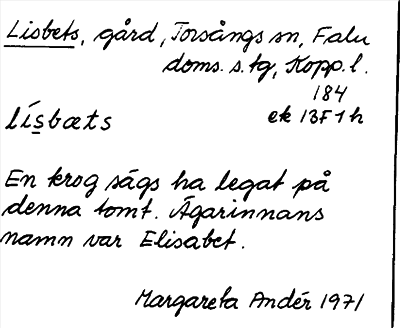 Lisbets, gård, Torsångs sn, Falu
doms. s. tg, Kopp. l.
184
lísbæts ek 13F1h
En krog sägs ha legat på
denna tomt. Ägarinnans
namn var Elisabet.
Margareta Andér 1971